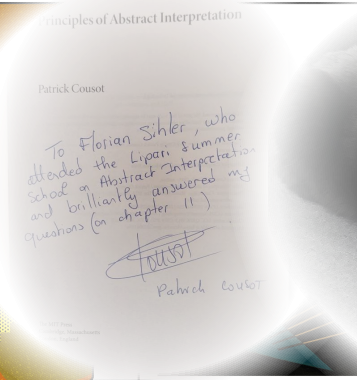 Principles of Abstract Interpretation
Patrick Cousot
To Florian Sihler, who
attended the Lipari Summer
School on Abstract Interpretation
and brilliantly answered my
questions (on chapter 11)
Cousot
Patrick Cousot